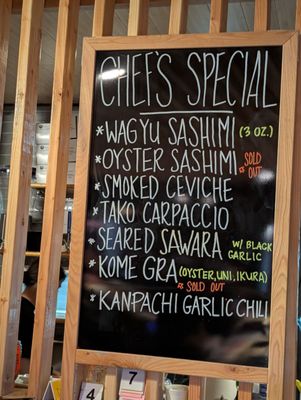 CHEF'S SPECIAL
* WAGYU SASHIMI (3 OZ.)
* OYSTER SASHIMI SOLD OUT
* SMOKED CEVICHE
* TAKO CARPACCIO
* SEARED SAWARA W/ BLACK GARLIC
* KOME GRA (OYSTER, UNI, IKURA)
* SOLD OUT
* KANPACHI GARLIC CHILI
4
7